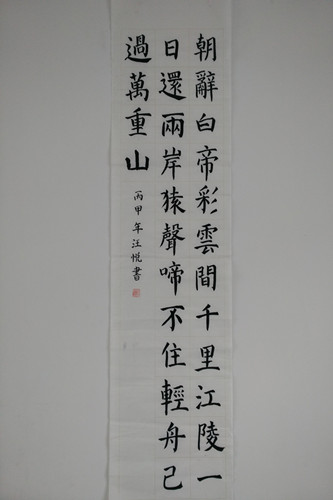 朝辭白帝彩雲間千里江陵一
日還兩岸猿聲啼不住輕舟已
過萬重山
丙申年汪悦書